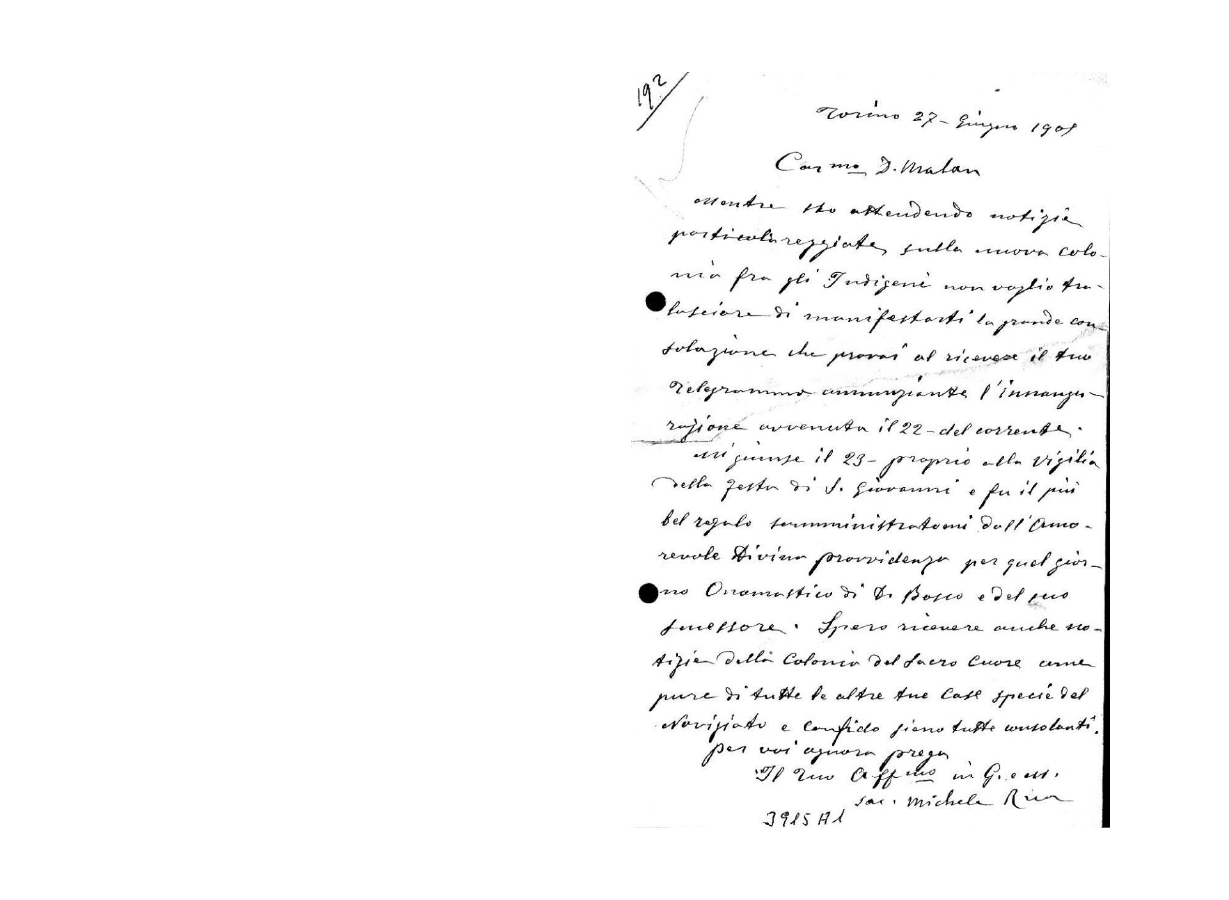 192
Torino 27 - Giugno 1905
Car.mo D. Malan
Mentre sto attendendo notizie
particolareggiate, sulla nuova colo-
nia fra gli Indigeni non voglio tra-
lasciare di manifestarti la grande con
solazione che provai al ricevere il tuo
Telegramma annunziante l'innaugu-
razione avvenuta il 22 - del corrente.
Mi giunse il 23 - proprio alla vigilia
della festa di S. Giovanni e fu il più
bel regalo somministratomi dall'Amo-
revole Divina provvidenza per quel gior-
no Onomastico di D. Bosco e del suo
successore. Spero ricevere anche no-
tizie della Colonia del Sacro Cuore come
pure di tutte le altre tue Case specie del
Noviziato e confido sieno tutte consolanti.
per voi ognora prega
Il Tuo Aff.mo in G. e M.
Sac. Michele Rua
3915 A1